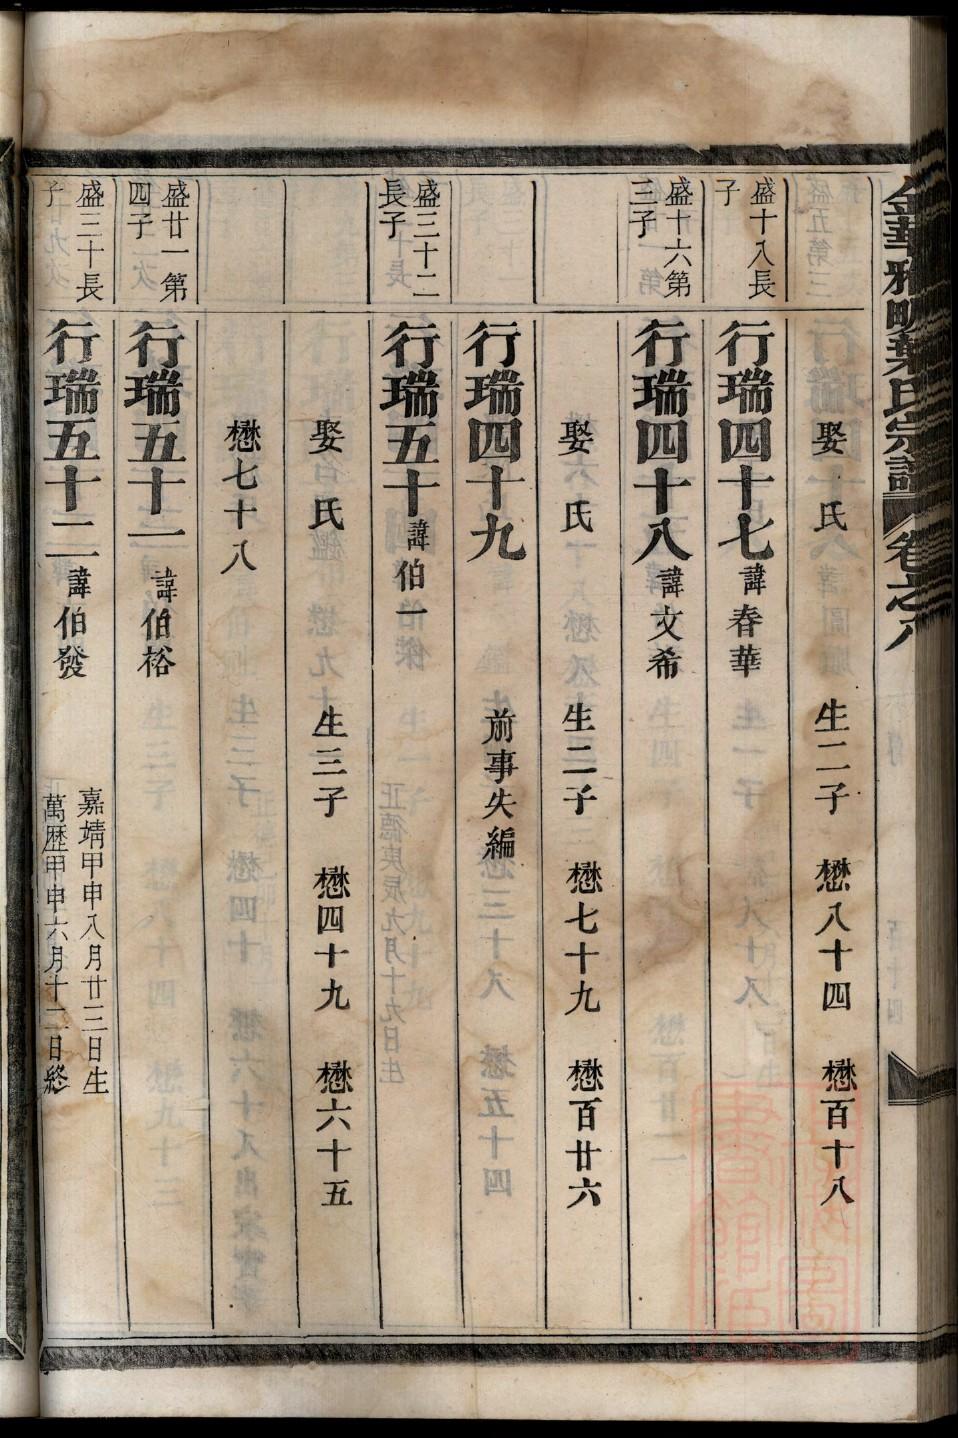 金華雅畈葉氏宗譜 卷之八
娶 氏 生二子 懋八十四 懋百十八
盛十八長
子
行瑞四十七 諱春華
盛十六第
三子
行瑞四十八 諱文希
娶 氏 生二子 懋七十九 懋百廿六
行瑞四十九 前事失編
盛三十二
長子
行瑞五十 諱伯一
娶 氏 生三子 懋四十九 懋六十五
懋七十八
盛廿一第
四子
行瑞五十一 諱伯裕
盛三十長
子
行瑞五十二 諱伯發
嘉靖甲申八月廿三日生
萬歷甲申六月十二日終